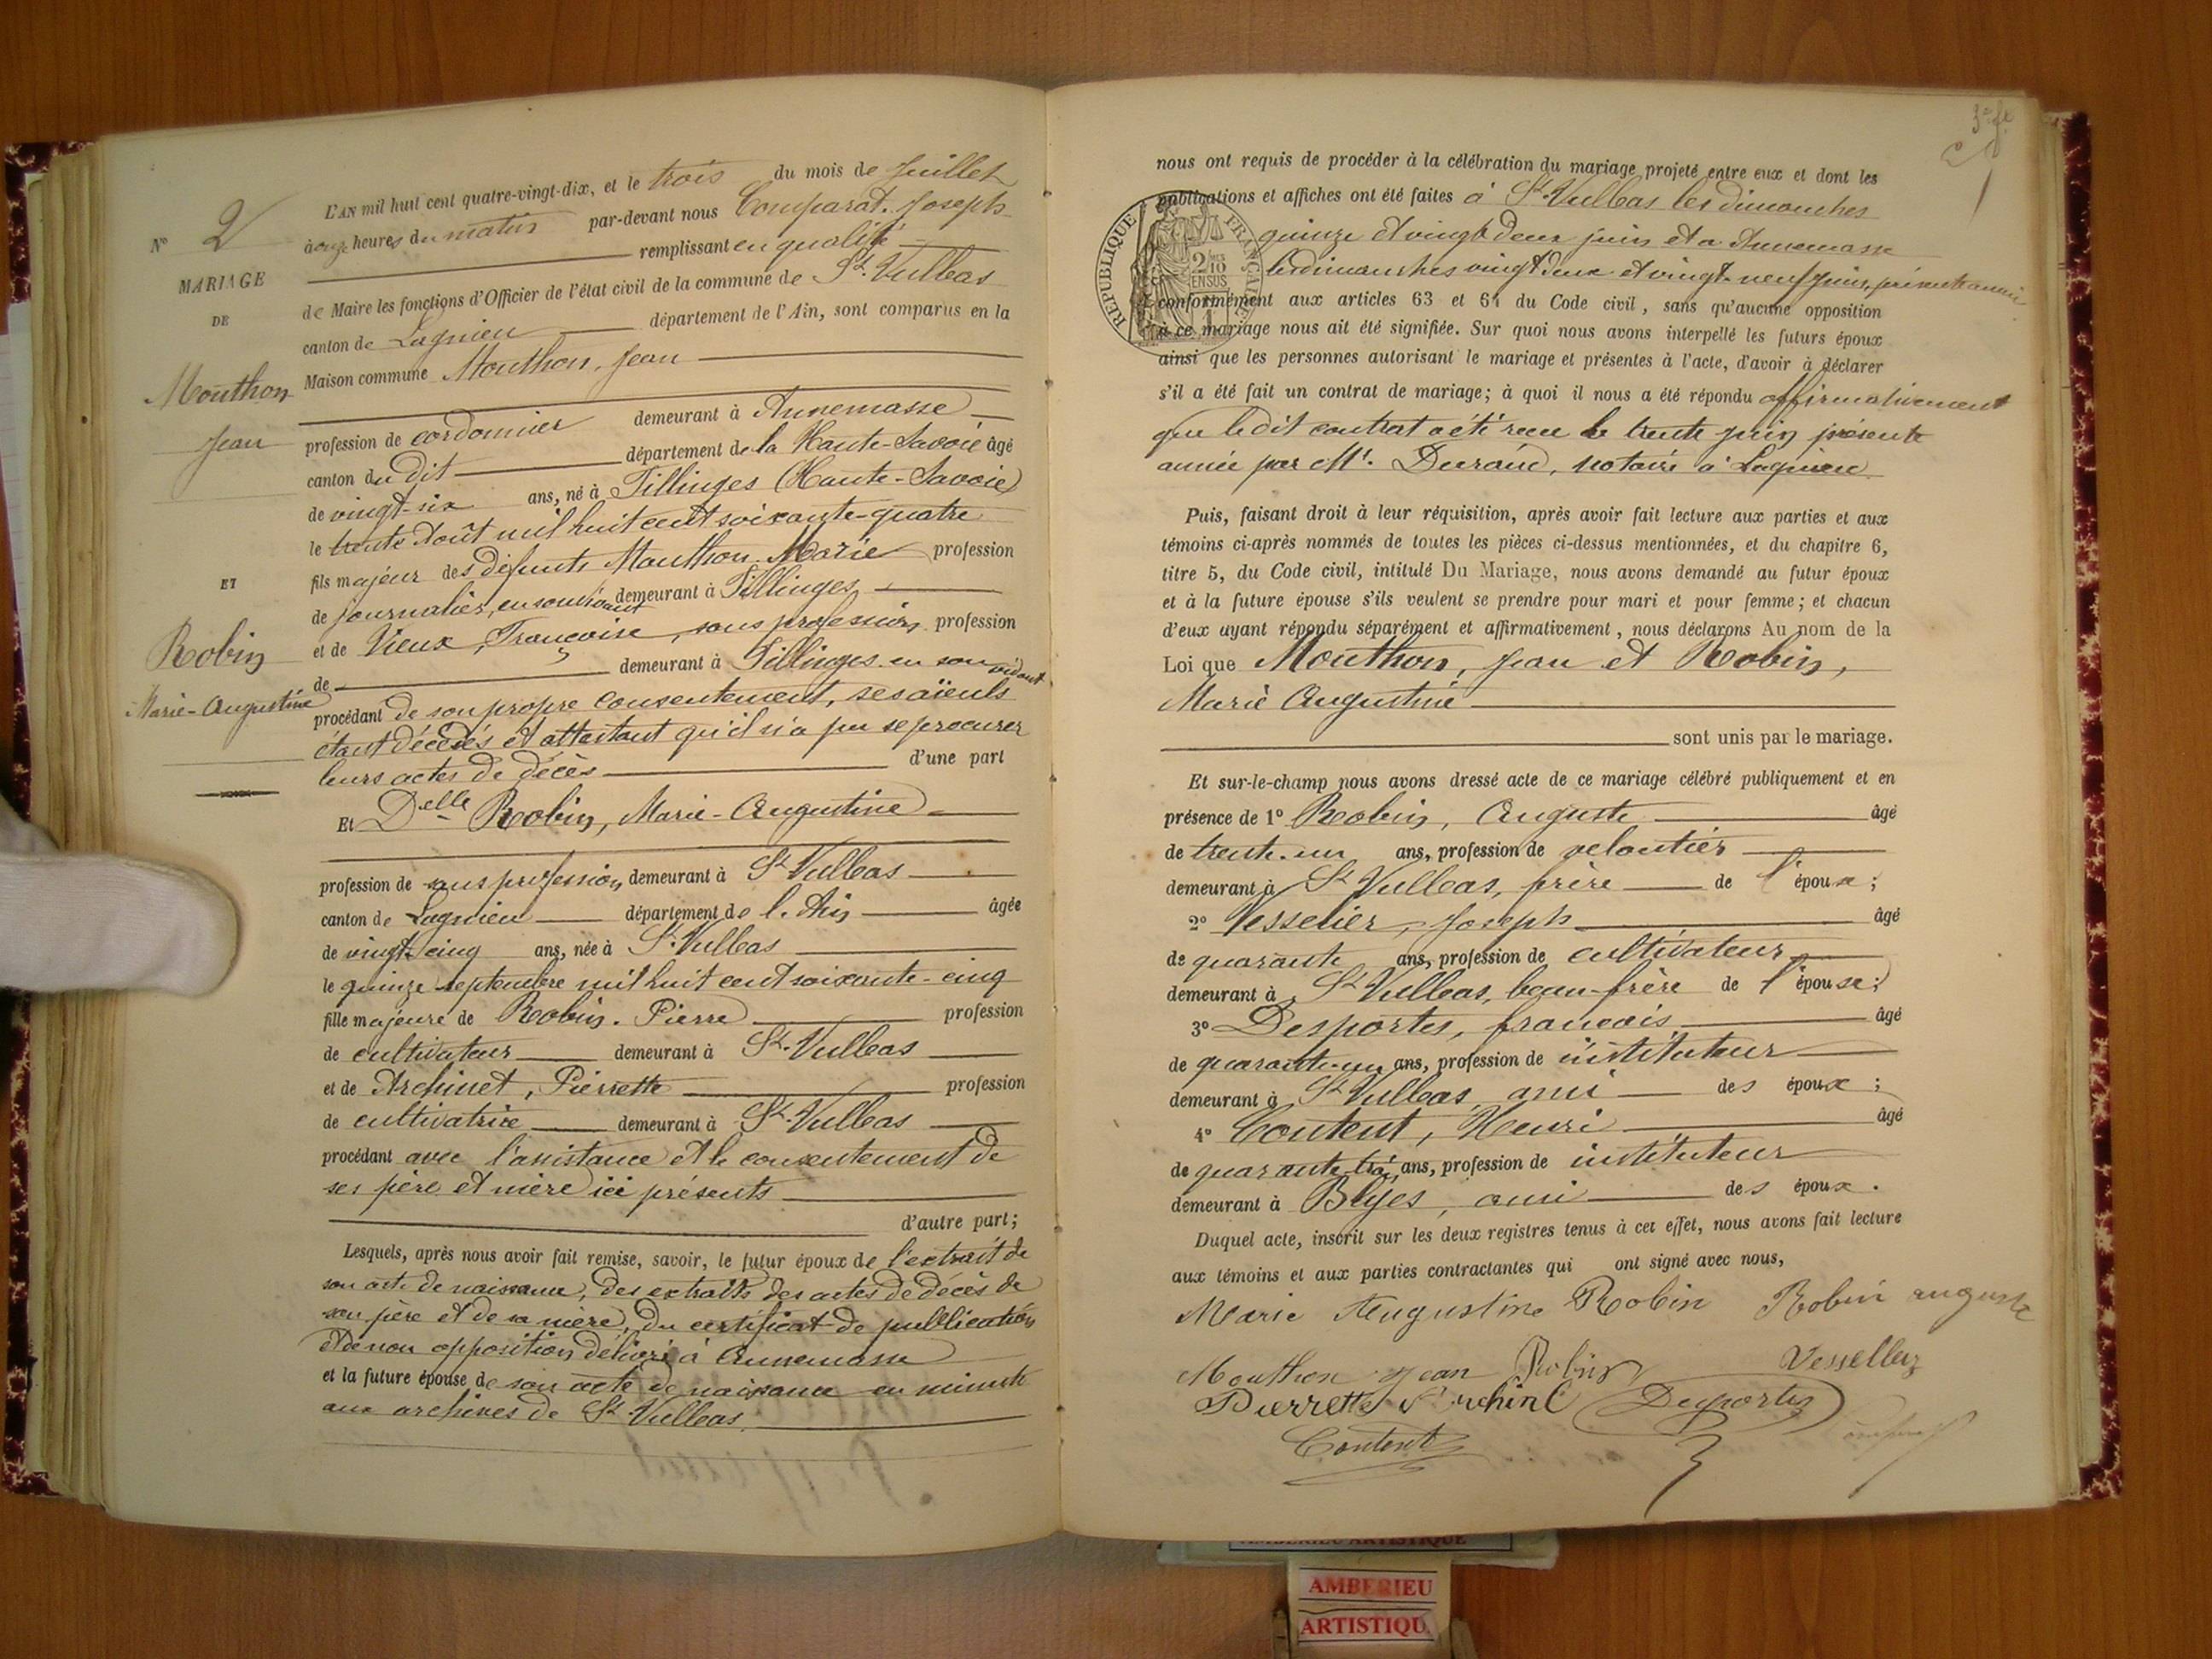 N° 2
MARIAGE
DE
Mouthon
Jean
ET
Robin
Marie-Augustine
L'AN mil huit cent quatre-vingt-dix, et le trois du mois de Juillet
à onze heures du matin par-devant nous Comparat Joseph
remplissant en qualité
de Maire les fonctions d'Officier de l'état civil de la commune de St Vulbas
canton de Lagnieu département de l'Ain, sont comparus en la
Maison commune Mouthon, Jean
profession de cordonnier demeurant à Annemasse
canton du dit département de la Haute-Savoie âgé
de vingt-six ans, né à Fillinges (Haute-Savoie)
le trente Août mil huit cent soixante-quatre
fils majeur des défunts Mouthon Marie profession
de journalier, en son vivant demeurant à Fillinges
et de Vieux, Françoise, sans profession profession
de demeurant à Fillinges en son vivant
procédant de son propre consentement, ses aïeuls
étant décédés et attestant qu'il n'a pu se procurer
leurs actes de décès d'une part
Et Delle Robin, Marie-Augustine
profession de sans profession demeurant à St Vulbas
canton de Lagnieu département de l'Ain âgée
de vingt-cinq ans, née à St Vulbas
le quinze septembre mil huit cent soixante-cinq
fille majeure de Robin Pierre profession
de cultivateur demeurant à St Vulbas
et de Archinet, Pierrette profession
de cultivatrice demeurant à St Vulbas
procédant avec l'assistance et le consentement de
ses père et mère ici présents
d'autre part;
Lesquels, après nous avoir fait remise, savoir, le futur époux de l'extrait de
son acte de naissance, des extraits des actes de décès de
son père et de sa mère, du certificat de publication
et de non opposition délivré à Annemasse
et la future épouse de son acte de naissance en minute
aux archives de St Vulbas.
nous ont requis de procéder à la célébration du mariage projeté entre eux et dont les
publications et affiches ont été faites à St Vulbas les dimanches
quinze et vingt deux juin et à Annemasse
les dimanches vingt deux et vingt-neuf juin, présente année
RÉPUBLIQUE FRANÇAISE
2/10 EN SUS
conformément aux articles 63 et 64 du Code civil, sans qu'aucune opposition
à ce mariage nous ait été signifiée. Sur quoi nous avons interpellé les futurs époux
ainsi que les personnes autorisant le mariage et présentes à l'acte, d'avoir à déclarer
s'il a été fait un contrat de mariage; à quoi il nous a été répondu affirmativement
que ledit contrat a été reçu le trente juin présente
année par Mr. Durand, notaire à Lagnieu
Puis, faisant droit à leur réquisition, après avoir fait lecture aux parties et aux
témoins ci-après nommés de toutes les pièces ci-dessus mentionnées, et du chapitre 6,
titre 5, du Code civil, intitulé Du Mariage, nous avons demandé au futur époux
et à la future épouse s'ils veulent se prendre pour mari et pour femme; et chacun
d'eux ayant répondu séparément et affirmativement, nous déclarons Au nom de la
Loi que Mouthon, Jean et Robin,
Marie Augustine
sont unis par le mariage.
Et sur-le-champ nous avons dressé acte de ce mariage célébré publiquement et en
présence de 1° Robin, Auguste âgé
de trente-un ans, profession de veloutier
demeurant à St Vulbas, frère de l'épouse;
2° Vesselier, Joseph âgé
de quarante ans, profession de cultivateur
demeurant à St Vulbas, beau-frère de l'épouse;
3° Desportes, francois âgé
de quarante-un ans, profession de instituteur
demeurant à St Vulbas, ami des époux;
4° Content, Henri âgé
de quarante-trois ans, profession de instituteur
demeurant à Blyes, ami des époux.
Duquel acte, inscrit sur les deux registres tenus à cet effet, nous avons fait lecture
aux témoins et aux parties contractantes qui ont signé avec nous,
Marie Augustine Robin Robin auguste
Mouthon Jean Robin Vesselier
Pierrette Archinet Desportes
Content
AMBERIEU ARTISTIQUE
AMBERIEU
ARTISTIQU